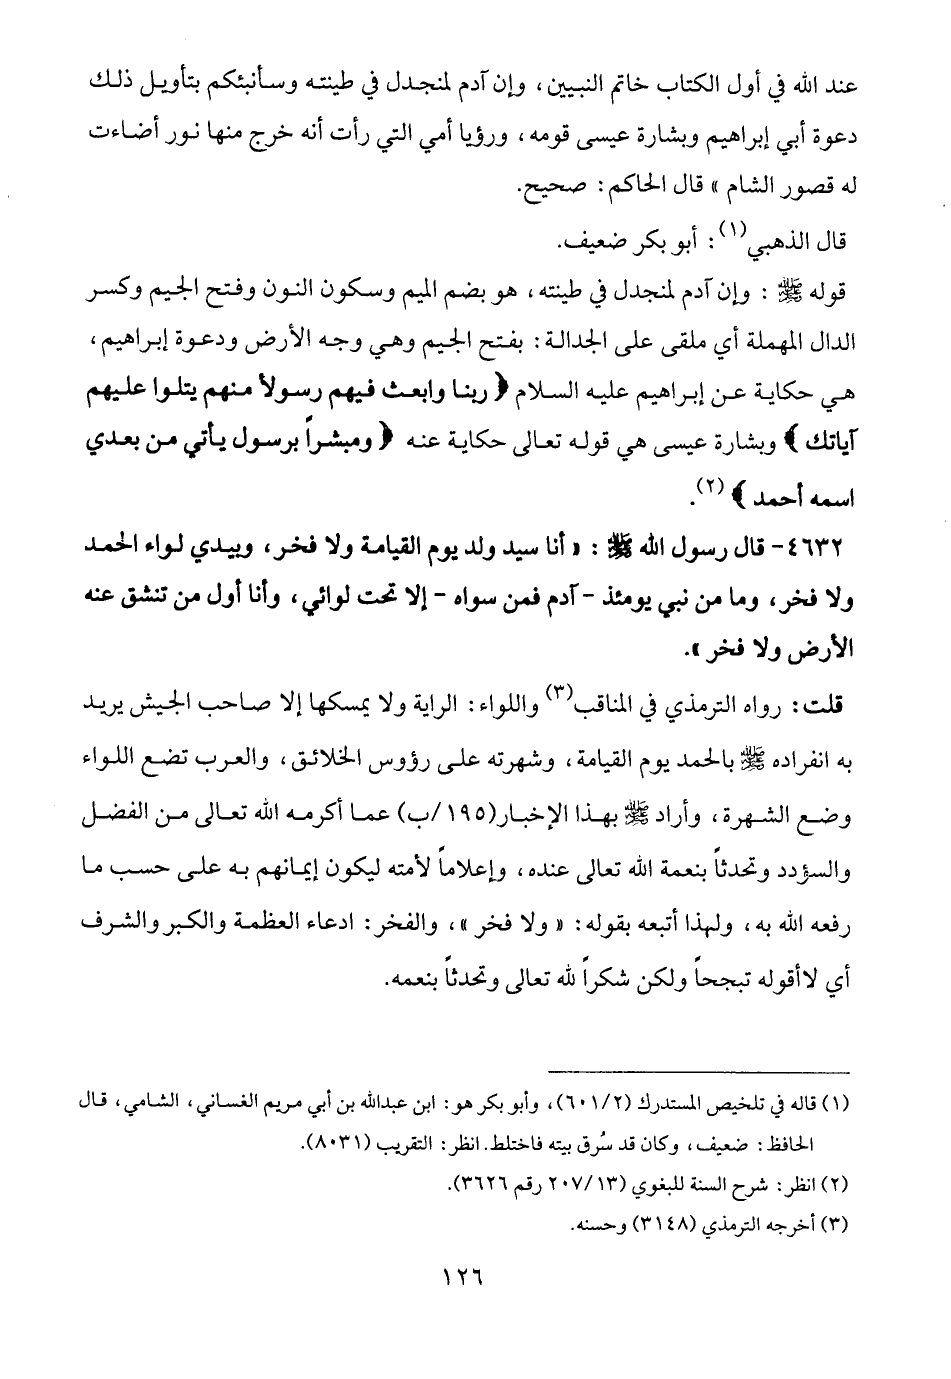 عند الله في أول الكتاب خاتم النبيين، وإن آدم لمنجدل في طينته وسأنبئكم بتأويل ذلك
دعوة أبي إبراهيم وبشارة عيسى قومه، ورؤيا أمي التي رأت أنه خرج منها نور أضاءت
له قصور الشام » قال الحاكم: صحيح.
قال الذهبي(١): أبو بكر ضعيف.
قوله ﷺ : وإن آدم لمنجدل في طينته، هو بضم الميم وسكون النون وفتح الجيم وكسر
الدال المهملة أي ملقى على الجدالة: بفتح الجيم وهي وجه الأرض ودعوة إبراهيم،
هي حكاية عن إبراهيم عليه السلام ﴿ ربنا وابعث فيهم رسولاً منهم يتلوا عليهم
آياتك ﴾ وبشارة عيسى هي قوله تعالى حكاية عنه ﴿ ومبشراً برسول يأتي من بعدي
اسمه أحمد ﴾ (٢).
٤٦٣٢- قال رسول الله ﷺ : « أنا سيد ولد يوم القيامة ولا فخر، وبيدي لواء الحمد
ولا فخر، وما من نبي يومئذ - آدم فمن سواه - إلا تحت لوائي، وأنا أول من تنشق عنه
الأرض ولا فخر ».
قلت: رواه الترمذي في المناقب(٣) واللواء: الراية ولا يمسكها إلا صاحب الجيش يريد
به انفراده ﷺ بالحمد يوم القيامة، وشهرته على رؤوس الخلائق، والعرب تضع اللواء
وضع الشهرة، وأراد ﷺ بهذا الإخبار(١٩٥/ب) عما أكرمه الله تعالى من الفضل
والسؤدد وتحدثاً بنعمة الله تعالى عنده، وإعلاماً لأمته ليكون إيمانهم به على حسب ما
رفعه الله به، ولهذا أتبعه بقوله: « ولا فخر »، والفخر: ادعاء العظمة والكبر والشرف
أي لاأقوله تبجحاً ولكن شكراً لله تعالى وتحدثاً بنعمه.
(١) قاله في تلخيص المستدرك (٦٠١/٢)، وأبو بكر هو: ابن عبدالله بن أبي مريم الغساني، الشامي، قال
الحافظ: ضعيف، وكان قد سُرق بيته فاختلط. انظر: التقريب (٨٠٣١).
(٢) انظر: شرح السنة للبغوي (٢٠٧/١٣ رقم ٣٦٢٦).
(٣) أخرجه الترمذي (٣١٤٨) وحسنه.
١٢٦